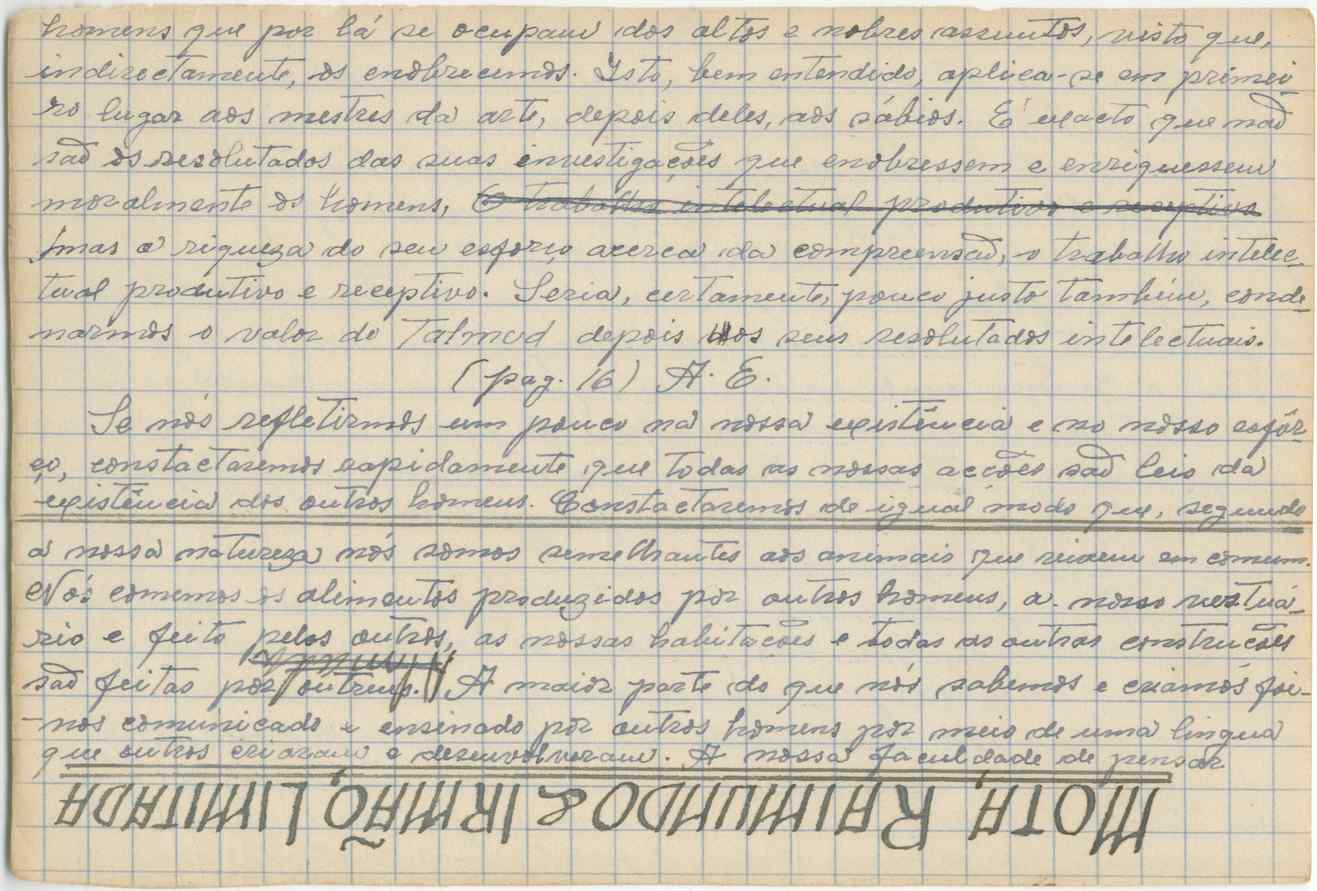 homens que por lá se ocupam dos altos e nobres assuntos, visto que,
indirectamente, os enobrecemos. Isto, bem entendido, aplica-se em primei-
ro lugar aos mestres da arte, depois deles, aos sábios. É exacto que não
são os resolutados das suas investigações que enobressem e enriquessem
moralmente os homens, O trabalho intelectual produtivo e receptivo
mas a riqueza do seu esforço acerca da compreensão, o trabalho intelec-
tual produtivo e receptivo. Seria, certamente, pouco justo também, conde-
narmos o valor do Talmud depois dos seus resolutados intelectuais.
(pag. 16) A. E.
Se nós refletirmos um pouco na nossa existência e no nosso esfôr-
ço, constactaremos rapidamente que todas as nossas acções são leis da
existência dos outros homens. Constactaremos de igual modo que, segundo
a nossa natureza nós somos semelhantes aos animais que vivem em comum.
Nós comemos os alimentos produzidos por outros homens, o nosso vestuá-
rio e feito pelos outros, as nossas habitações e todas as outras construções
são feitas por outrem. A maior parte do que nós sabemos e criamos foi-
-nos comunicado e ensinado por outros homens por meio de uma lingua
que outros criaram e desenvolveram. A nossa faculdade de pensar
MOTA, RAIMUNDO & IRMÃO, LIMITADA